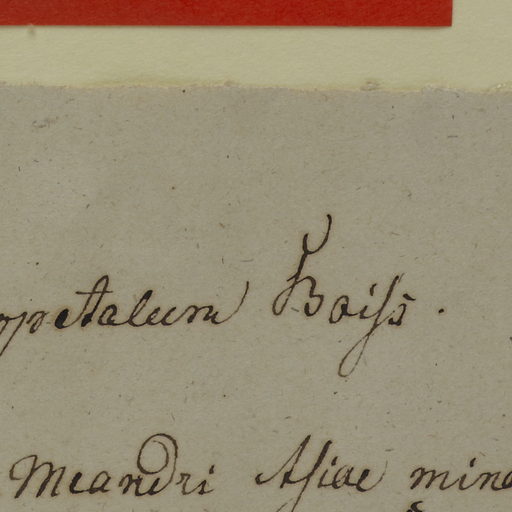 petalum Boiss.
Meandri Asiae mino